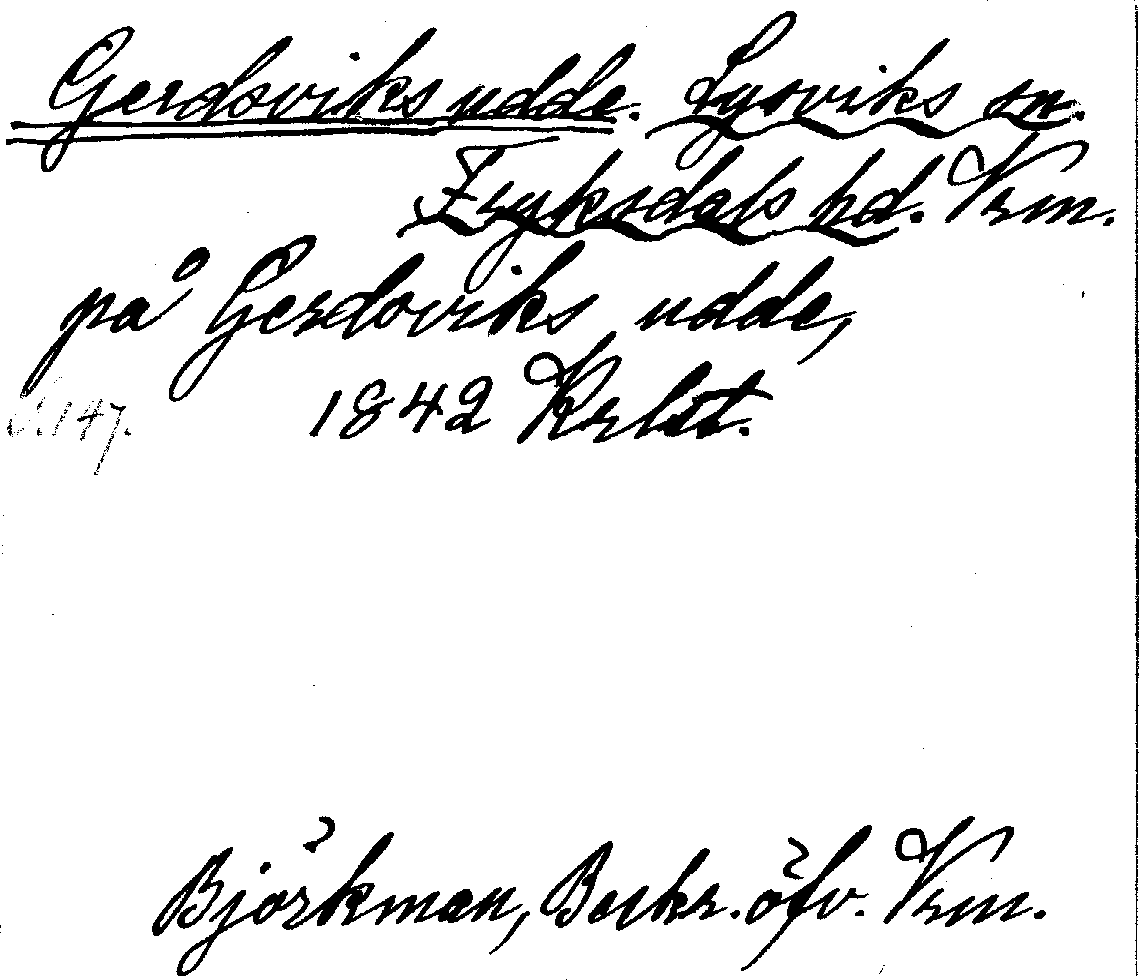 Gerdsviks udde. Lysviks sn.
Fryksdals hd. Vrm.
på Gerdsviks udde,
1842 Krlst.
s. 147.
Björkman, Beskr. öfv. Vrm.